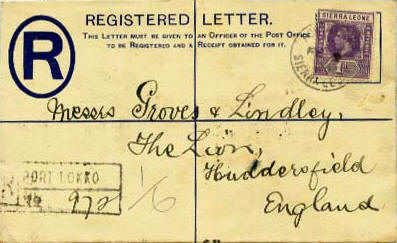 REGISTERED LETTER.
THIS LETTER MUST BE GIVEN TO AN OFFICER OF THE POST OFFICE
TO BE REGISTERED AND A RECEIPT OBTAINED FOR IT.
R
SIERRA LEONE
Messrs Groves & Lindley,
The Lion,
Huddersfield
England
PORT LOKKO
972
1/6